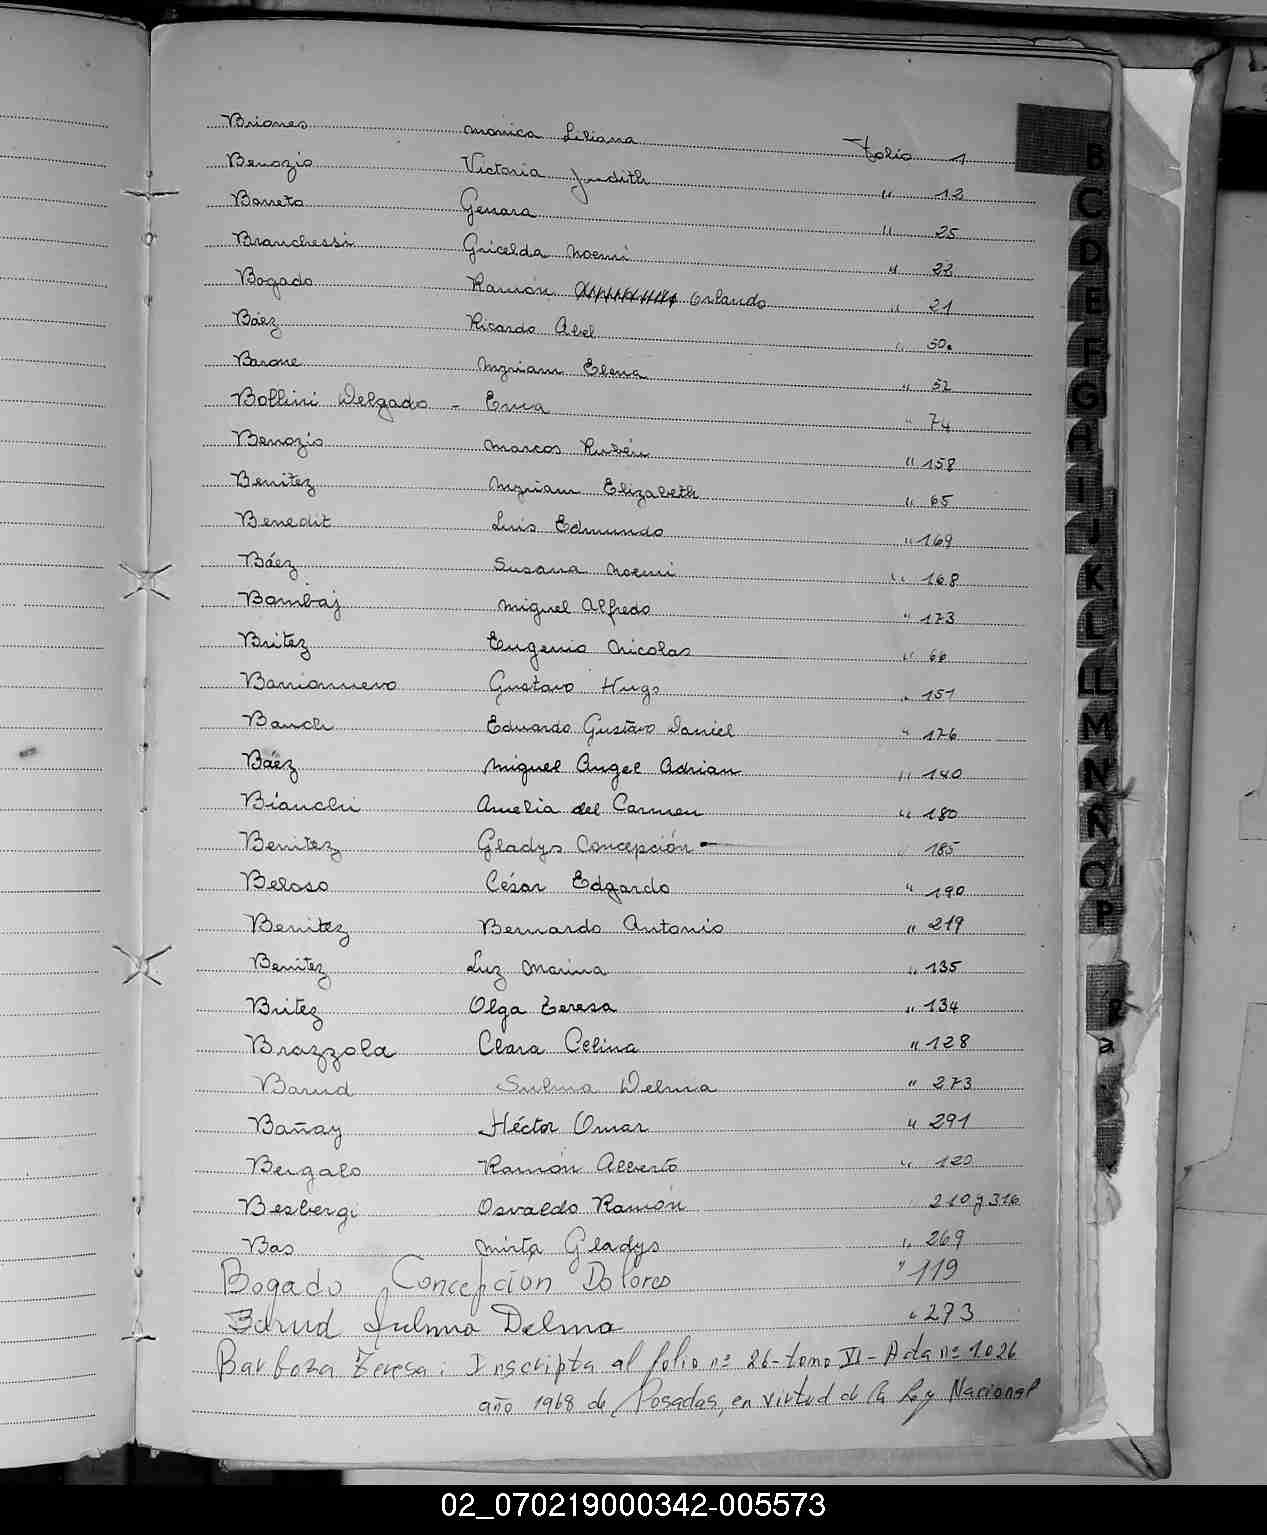 Briones Monica Liliana Folio 1
Benozio Victoria Judith " 12
Barreto Genara " 25
Branchessi Gricelda Noemi " 22
Bogado Ramón Orlando " 21
Báez Ricardo Abel " 50.
Barone Myriam Elena " 52
Bollini Delgado - Erica " 74
Benozio Marcos Rubén " 158
Benitez Myriam Elizabeth " 65
Benedit Luis Edmundo " 169
Báez Susana Noemi " 168
Bambaj Miguel Alfredo " 173
Britez Eugenio Nicolas " 66
Barrionuevo Gustavo Hugo " 151
Bauch Eduardo Gustavo Daniel " 176
Báez Miguel Angel Adrian " 140
Bianchi Amelia del Carmen " 180
Benitez Gladys Concepción - " 185
Beloso César Edgardo " 190
Benitez Bernardo Antonio " 219
Benitez Luz Marina " 135
Britez Olga Teresa " 134
Brazzola Clara Celina " 128
Barud Sulma Delma " 273
Bañay Héctor Omar " 291
Bergalo Ramón Alberto " 120
Besbergi Osvaldo Ramón " 210 y 316
Bas Mirta Gladys " 269
Bogado Concepción Dolores " 119
Barud Sulma Delma " 273
Barboza Teresa: Inscripta al folio nº 26 - tomo VI - Acta nº 1026
año 1968 de Posadas, en virtud de la Ley Nacional
B
C
D
E
F
G
H
I
J
K
L
LL
M
N
Ñ
O
P
R
02_070219000342-005573